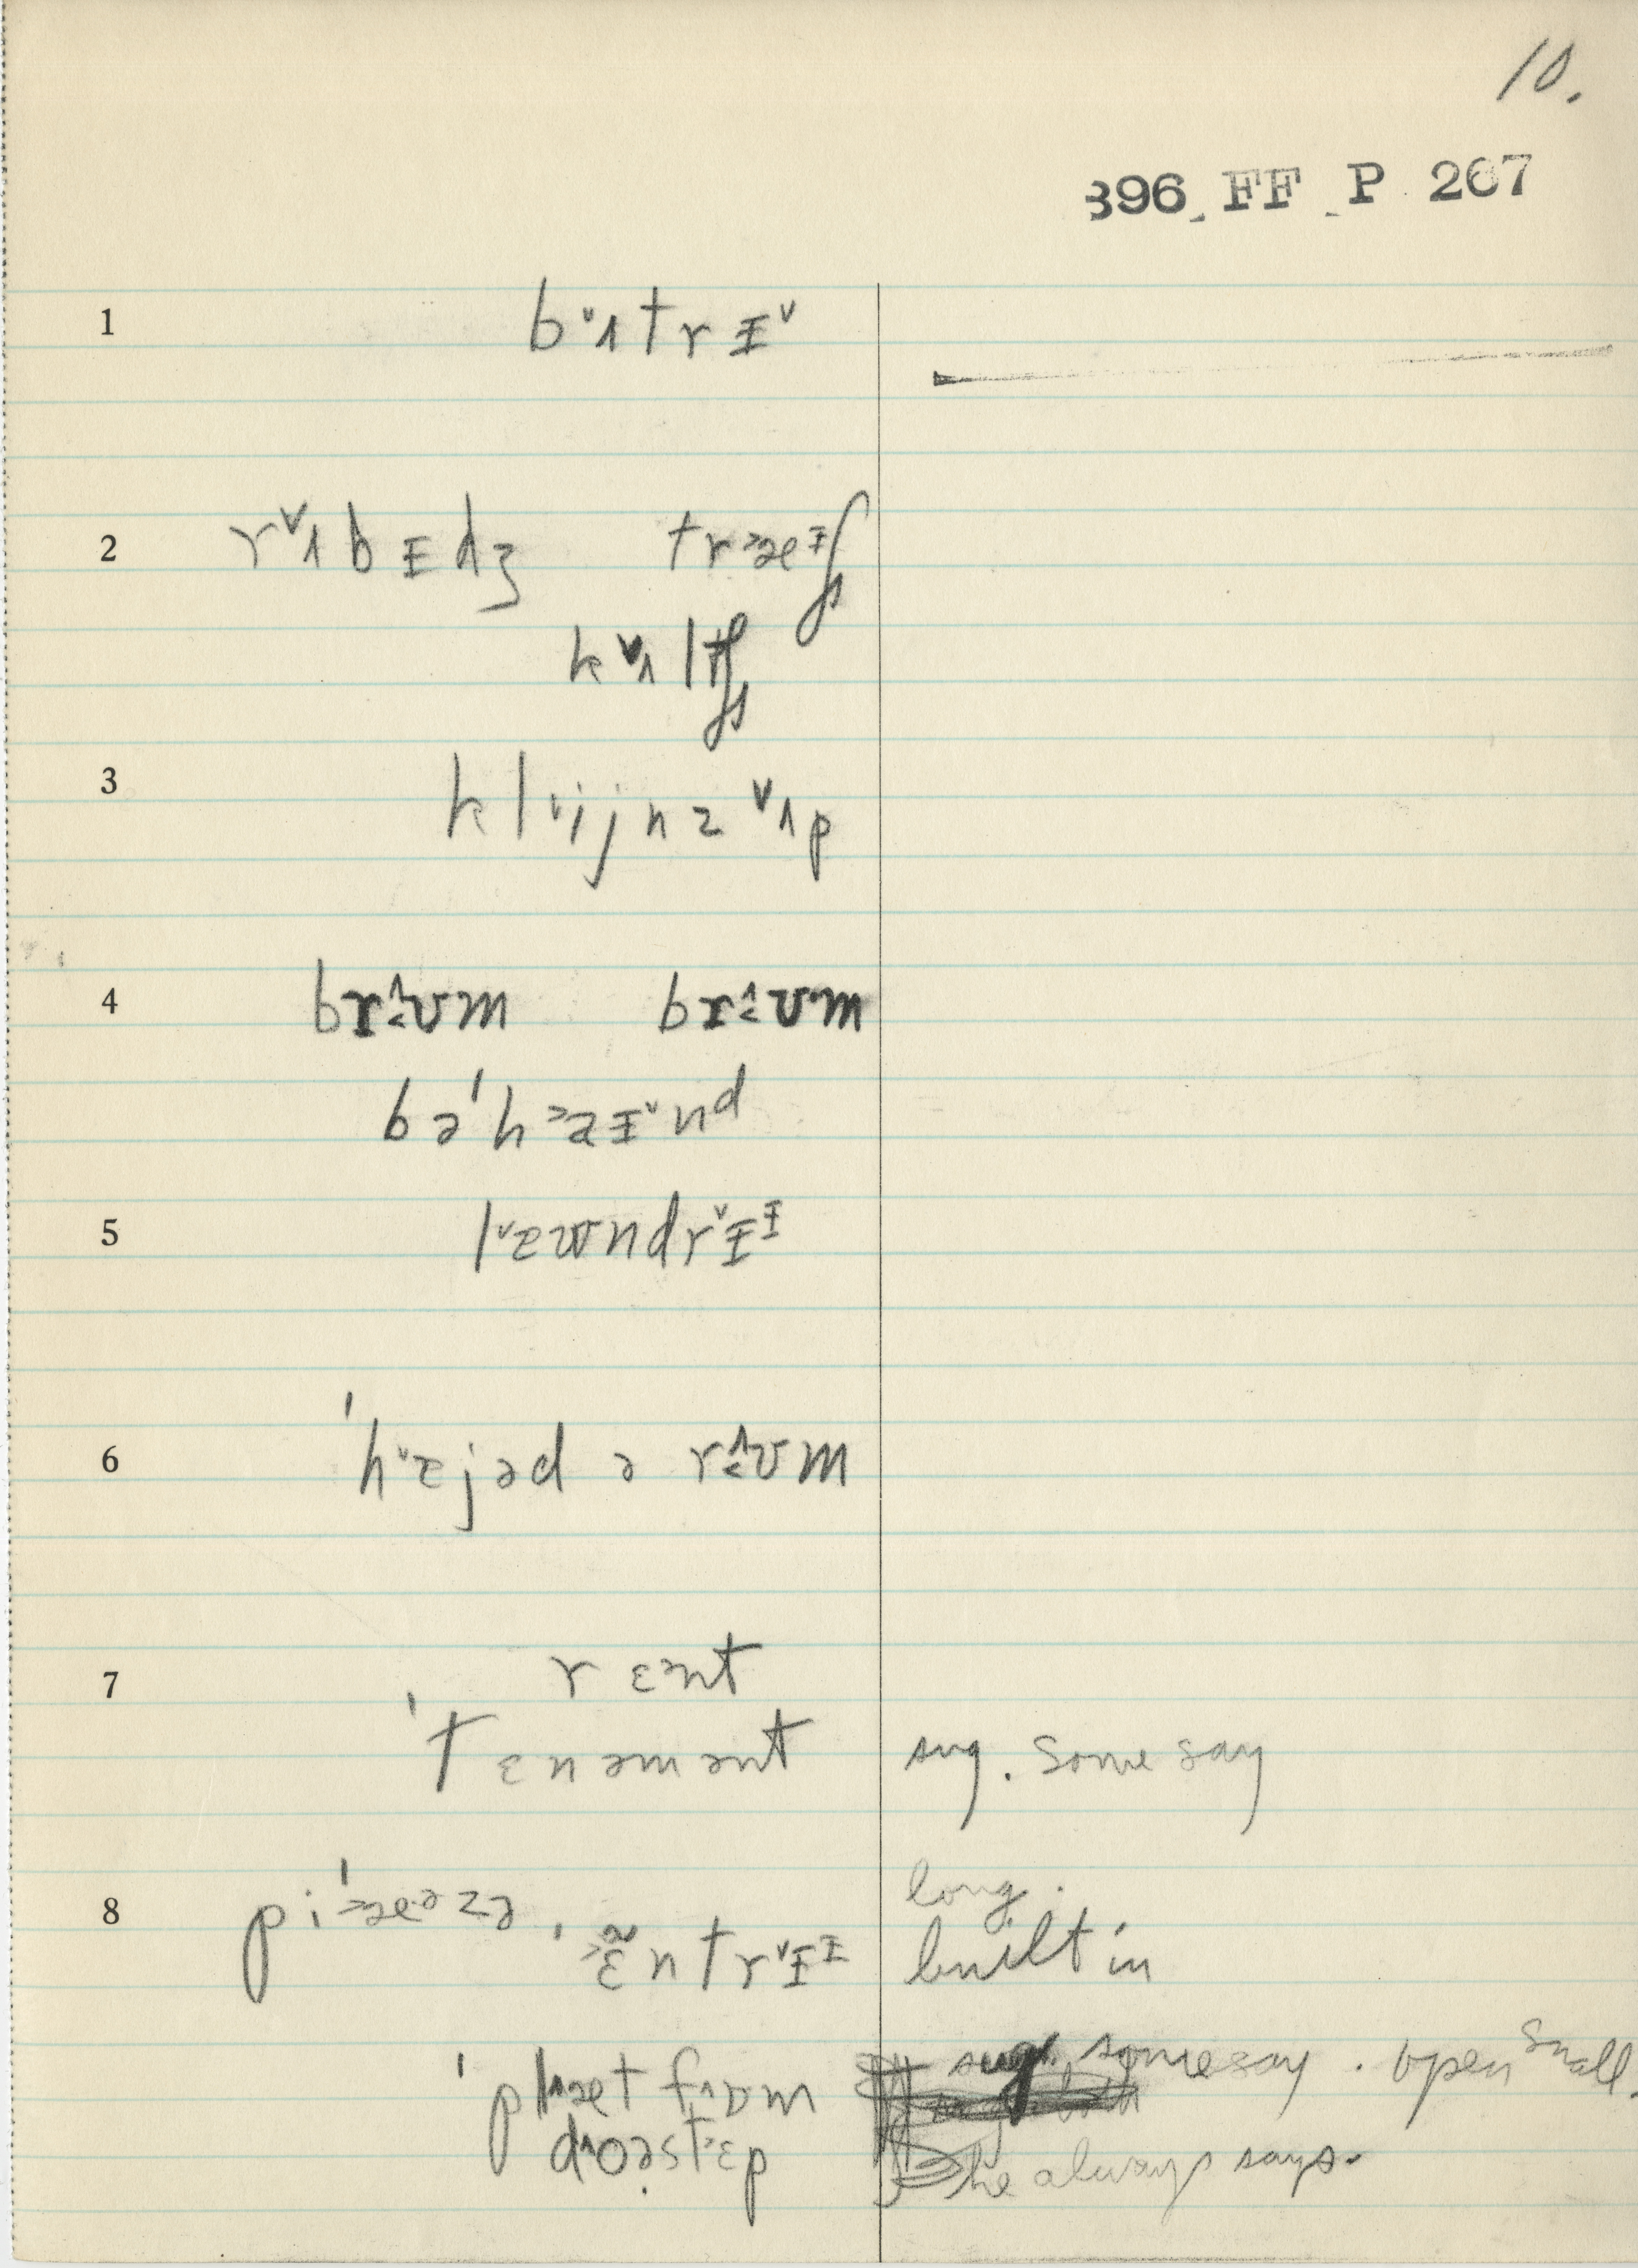 10.
396 FF P 267
1 b˅ʌtrɪ˅
2 r˅ʌbɪdʒ tr˃æᶦʃ
k˅ʌltʃ
3 kl˅ijnz ˅ʌp
4 br˂ʊm br˂ʊm
bə'h˃aɪ˅nᵈ
5 l˅ɛʊndr˅ɪᶦ
6 'h˅ɛjəd ə r˂ʊm
7 r ɛᵊnt
'tɛnəmənt sug. some say
8 pi'˃æᵊzə, long.
'˃ɛ̃ntr˅ɪᶦ built in
'pl˄ætf˄ɒm sug. some say. open small.
d˄oəst˃ɛp he always says.